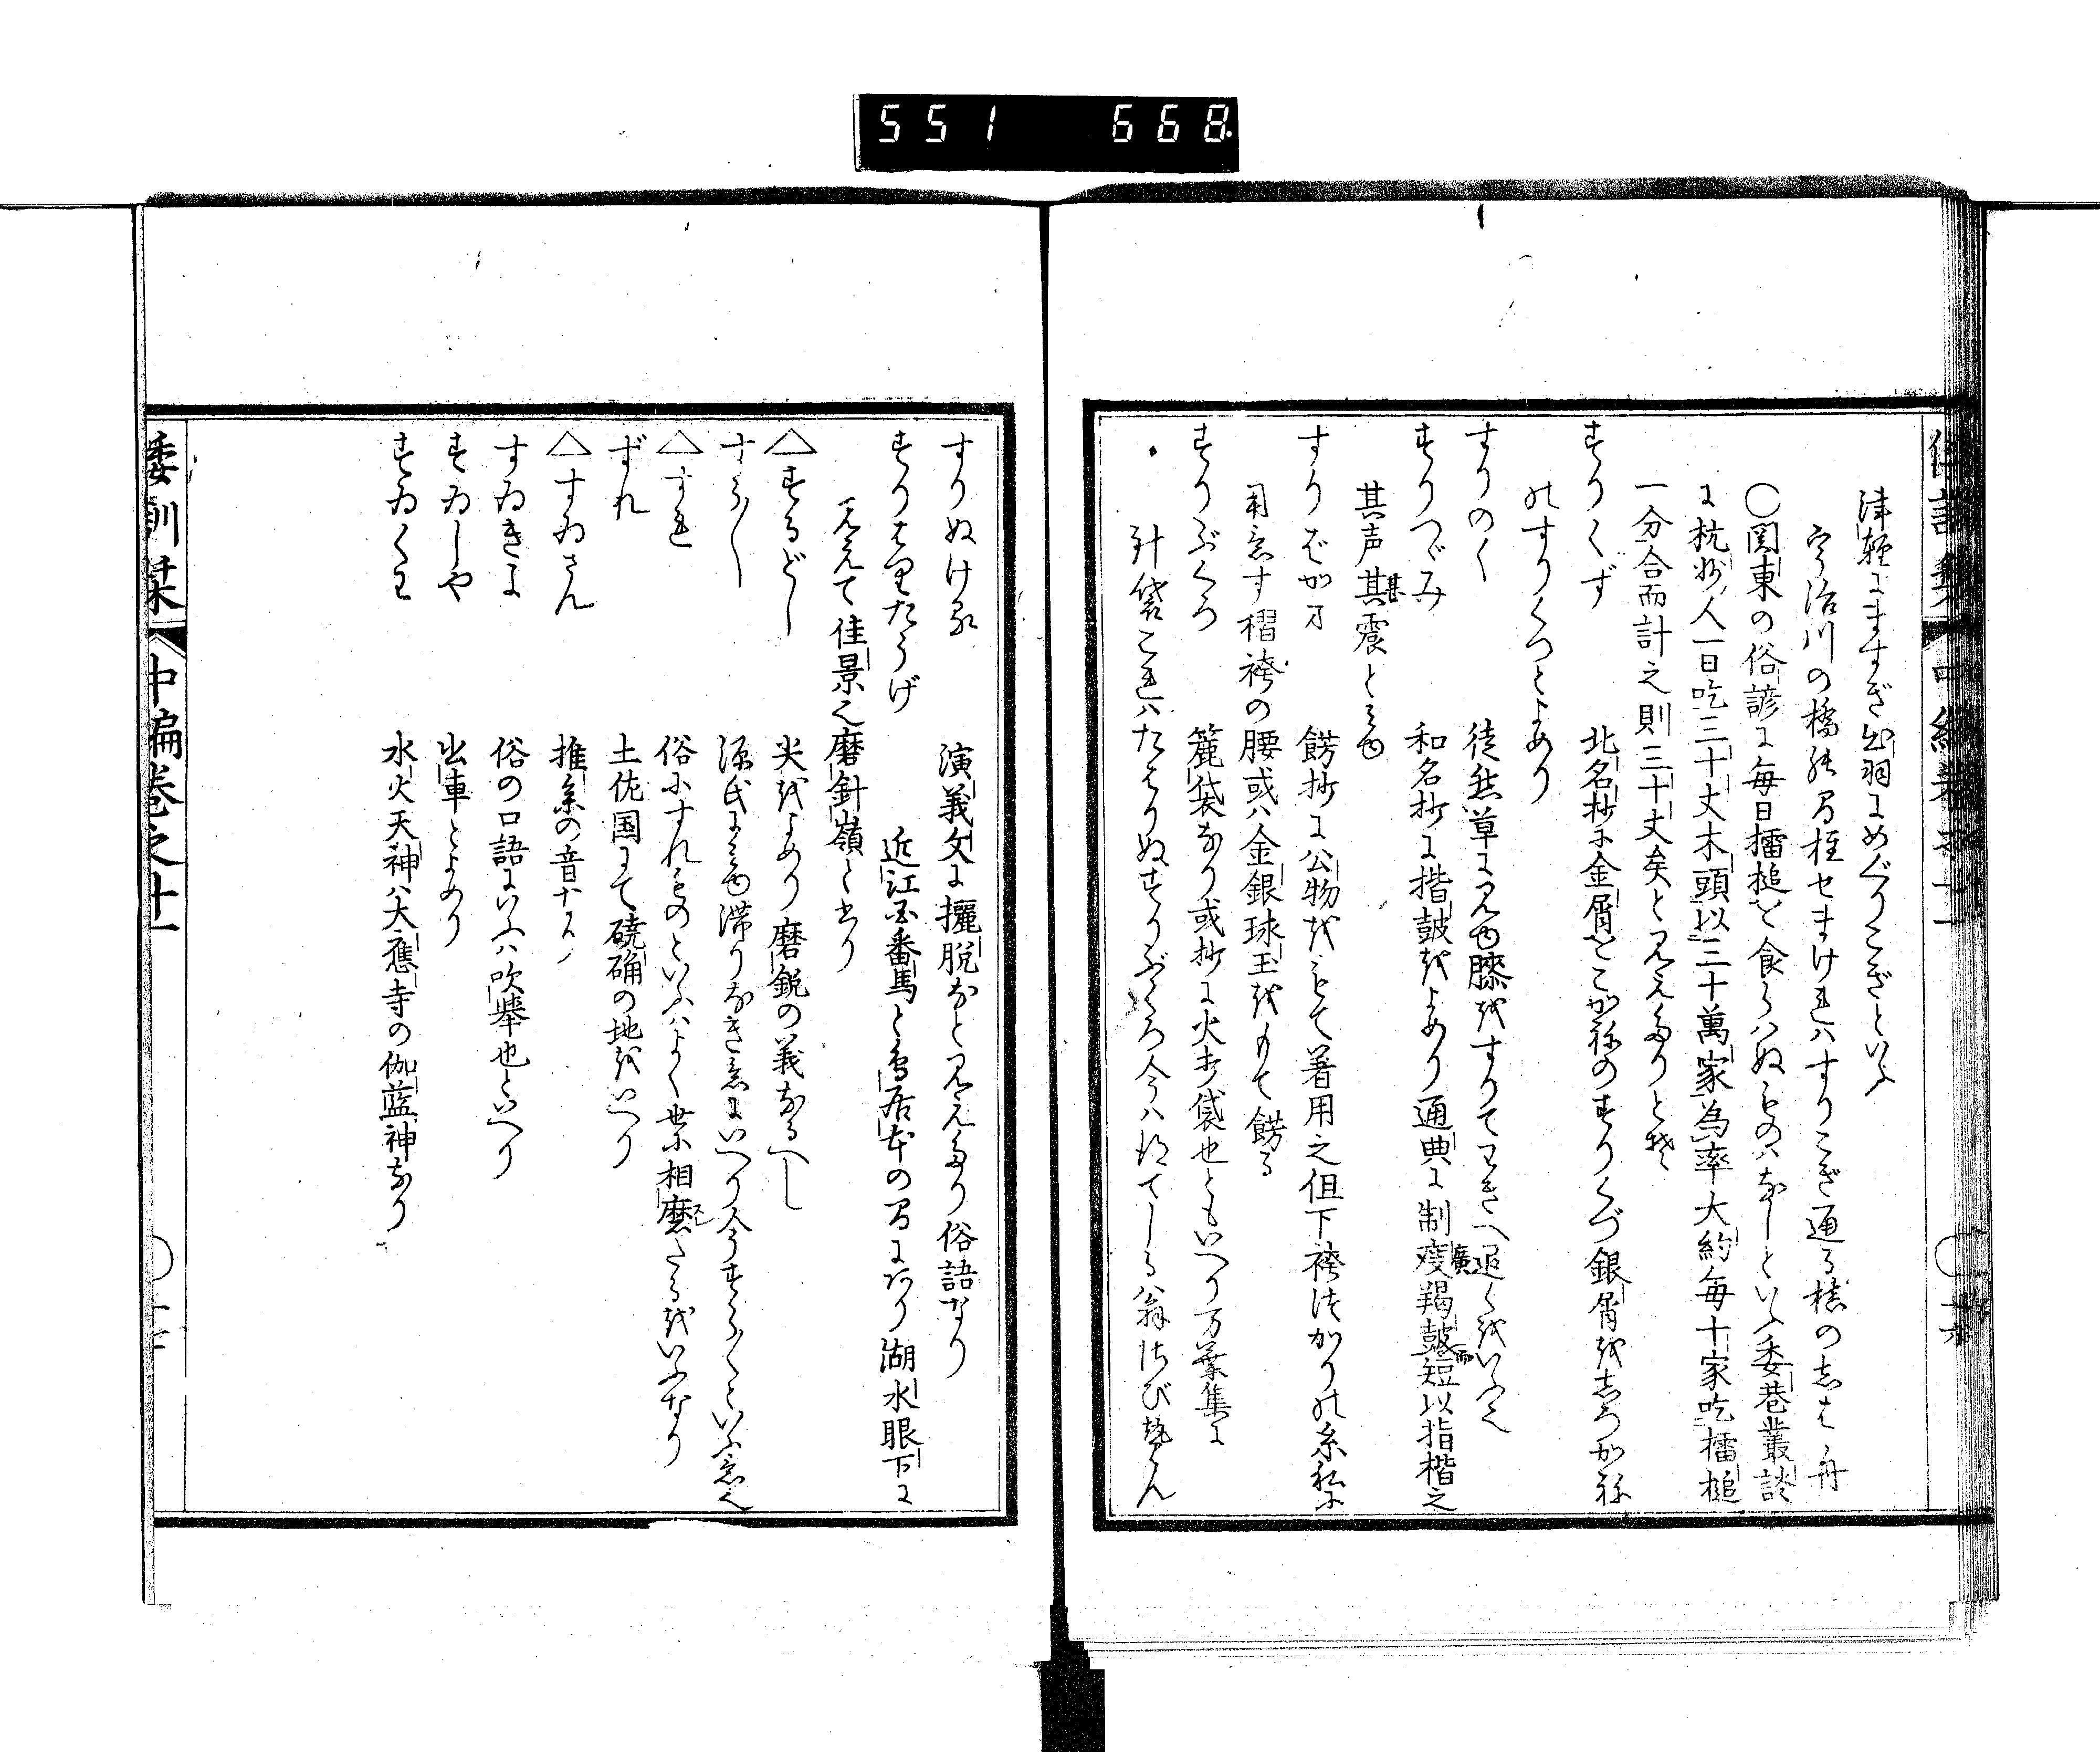 551 668
津軽にますぎ出羽にめぐりこぎといふ
宇治川の橋の間柱せまけれはすりこぎ通る棹のしは舟
〇関東の俗諺に毎日擂槌を食らはぬものはなしといふ委巷叢談
に杭州人一日吃三十丈木頭以三十萬家為率大約毎十家吃擂槌
一分合而計之則三十丈矣と見えたりとそ
すりくず 北名抄に金屑をこかねのすりくづ銀屑をしろかね
のすりくつとよめり
すりのく 徒然草に見ゆ膝をすりてわきへ退くをいふ也
すりつゞみ 和名抄に揩鼓をよめり通典に制廣羯鼓而短以指楷之
其声甚震とみゆ
すりばかま 餝抄に公物をもて著用之但下袴はかりの糸私に
用意す摺袴の腰或ハ金銀球玉をもて餝る
すりぶくろ 簏袋なり或抄に火打袋也ともいへり万葉集に
針袋これハたはりぬすりぶくろ今ハ得てしる翁はびせん
すりぬける 演義文に攞脱なと見えたり俗語なり
すりはりたうげ 近江国番馬と鳥居本の間にあり湖水眼下に
みえて佳景也磨針嶺と書り
△するどし 尖をよめり磨鋭の義なるへし
すら〱 源氏にみゆ滞りなき意にいへり今すら〱といふ意也
△すれ 俗にすれものといふハよく世に相磨したるをいふなり
ずれ 土佐国にて磽确の地をいへり
△すゐさん 推参の音なり
すゐきよ 俗の口語にいふハ吹挙也といへり
すゐしや 出車とよめり
すゐくわ 水火天神ハ大應寺の伽藍神なり
倭訓栞 中編巻之十一